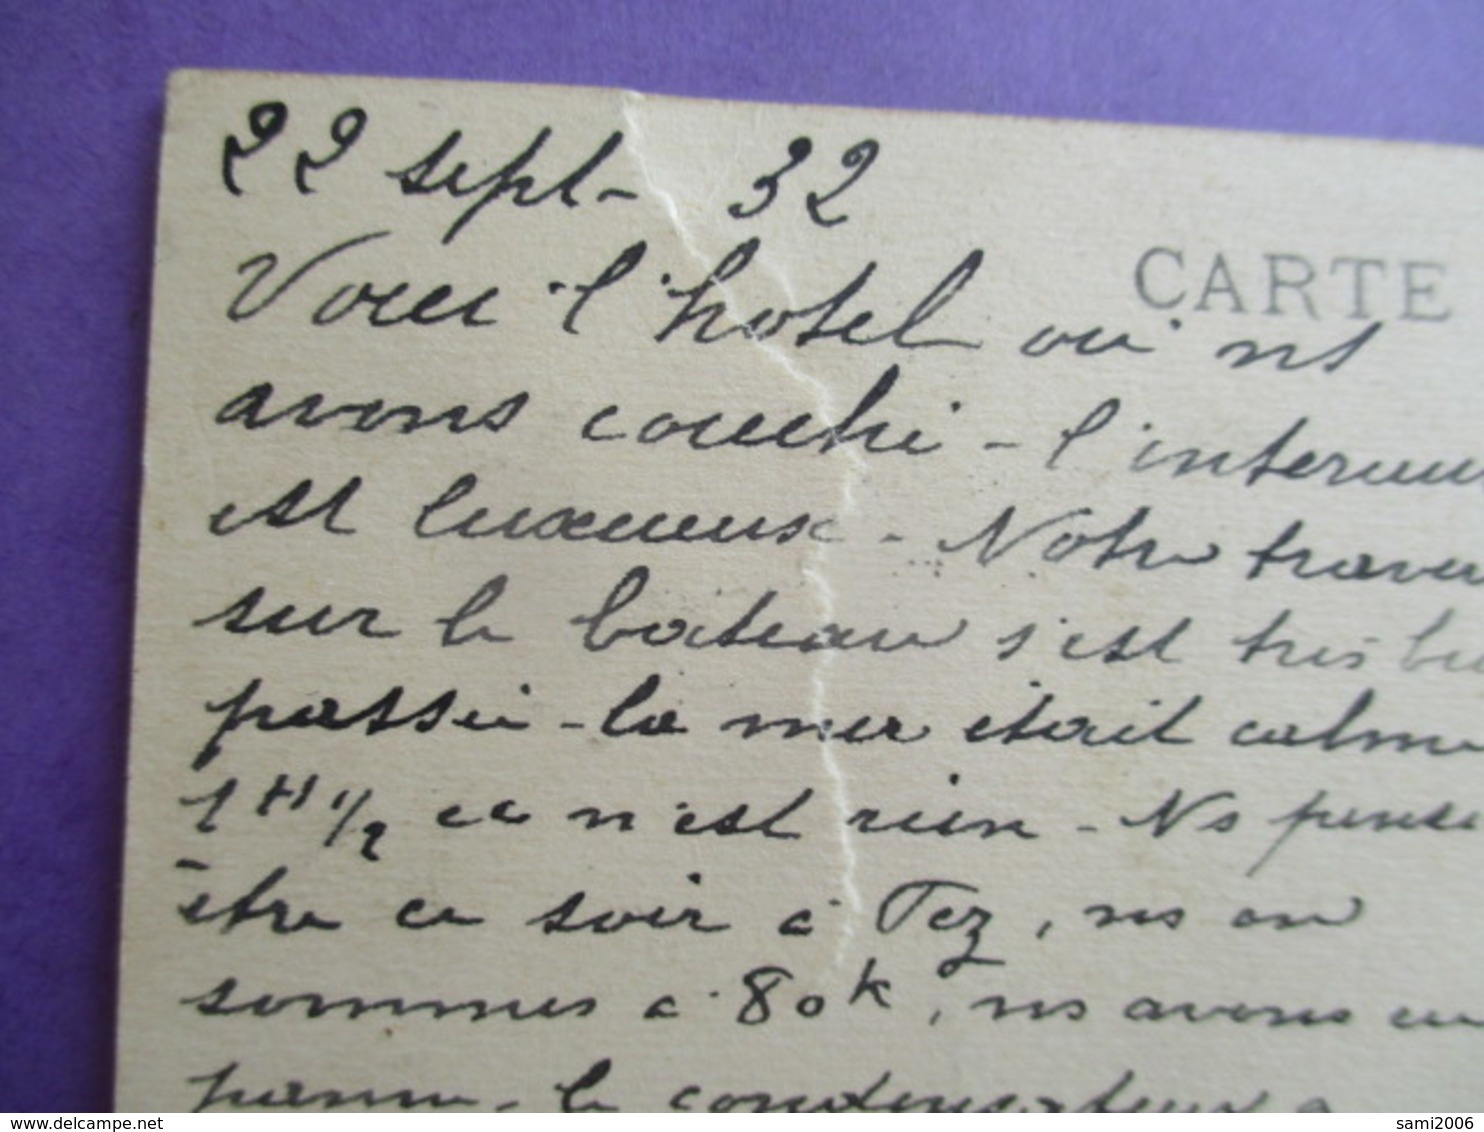 22 sept - 32
CARTE
Voici l'hotel où ns
avons couché - l'interieur
est luxueux - Notre traver
sur le bateau s'est très bie
passée - la mer était calme
1 H 1/2 ce n'est rien - Ns pense
être ce soir à Fez, ns en
sommes à 80 k, ns avons eu
panne - le condensateur a
delcampe.net
sami2006